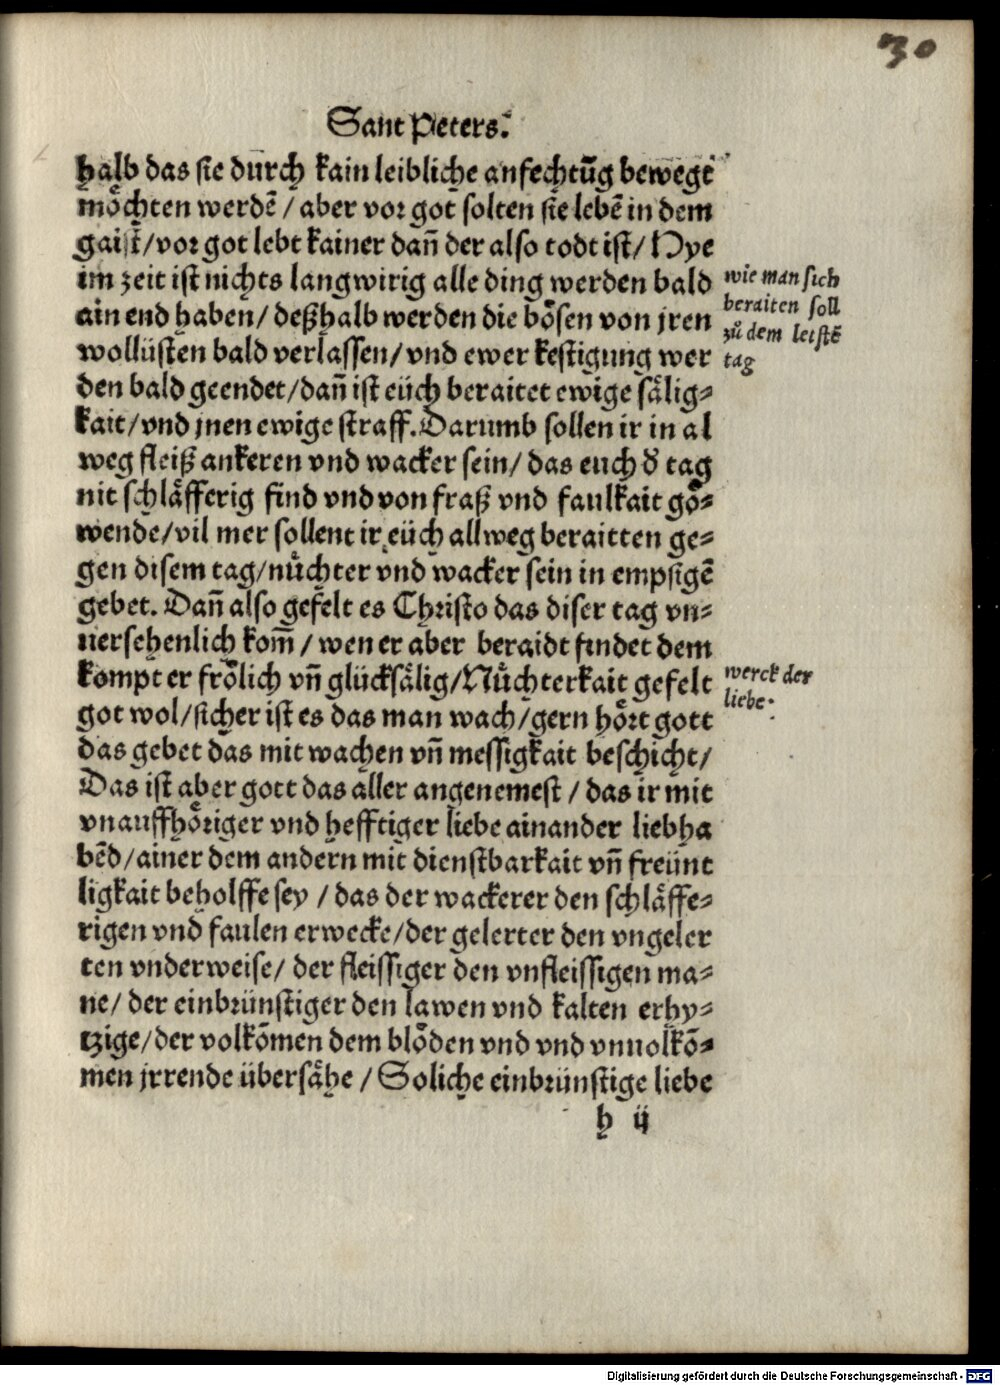 30
Sant Peters.
halb das sie durch kain leibliche anfechtūg bewegt
moͤchten werdē / aber vor got solten sie lebē in dem
gaist/vor got lebt kainer dañ der also todt ist/ Hye
im zeit ist nichts langwirig alle ding werden bald
ain end haben/ deßhalb werden die boͤsen von jren
wollüsten bald verlassen/ vnd ewer kestigung wer
den bald geendet/dañ ist eüch beraitet ewige saͤlig⸗
kait/vnd jnen ewige straff. Darumb sollen ir in al
weg fleiß ankeren vnd wacker sein/ das euch d̛ tag
nit schlaͤfferig find vnd von fraß vnd faulkait goͤ⸗
wende/vil mer sollent ir eüch allweg beraitten ge⸗
gen disem tag/nuͤchter vnd wacker sein in empsigē
gebet. Dañ also gefelt es Christo das diser tag vn⸗
uersehenlich kom̄ / wen er aber beraidt findet dem
kompt er froͤlich vñ glücksaͤlig/Nuͤchterkait gefelt
got wol/sicher ist es das man wach/gern hoͤrt gott
das gebet das mit wachen vñ messigkait beschicht/
Das ist aber gott das aller angenemest / das ir mit
vnauffhoͤriger vnd hefftiger liebe ainander liebha
bēd/ainer dem andern mit dienstbarkait vñ freünt
ligkait beholffe sey / das der wackerer den schlaͤffe⸗
rigen vnd faulen erwecke/der gelerter den vngeler
ten vnderweise/ der fleissiger den vnfleissigen ma⸗
ne/ der einbrünstiger den lawen vnd kalten erhy⸗
tzige/der volkōmen dem bloͤden vnd vnd vnuolkō⸗
men jrrende übersaͤhe / Soliche einbrünstige liebe
h ij
wie man sich
beraiten soll
zuͦ dem leistē
tag
werck der
liebe.
Digitalisierung gefördert durch die Deutsche Forschungsgemeinschaft - DFG